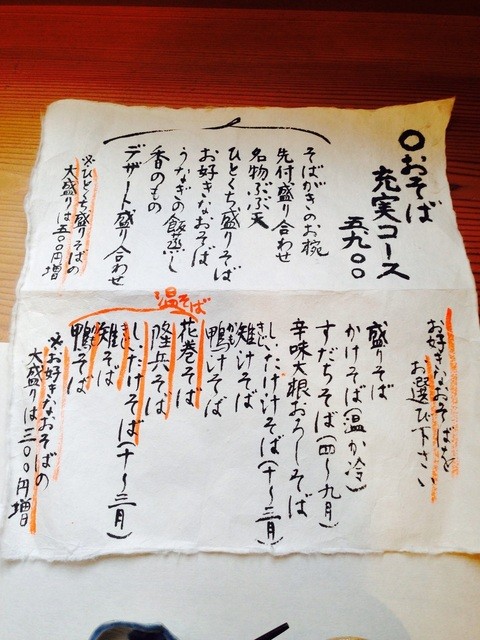 〇おそば
充実コース
五九〇〇
そばがきのお椀
先付盛り合わせ
名物ぶぶ天
ひとくち盛りそば
お好きなおそば
うなぎの飯蒸し
香のもの
デザート盛り合わせ
※ひとくち盛りそばの
大盛りは五〇〇円増
お好きなおそばを
お選び下さい
盛りそば
かけそば(温か冷)
すだちそば(四〜九月)
辛味大根おろしそば
しいたけ汁そば(十〜三月)
雉汁そば
きじ
鴨汁そば
かも
温そば
花巻そば
隆兵そば
しいたけそば(十〜三月)
雉そば
きじ
鴨そば
かも
※お好きなおそばの
大盛りは三〇〇円増